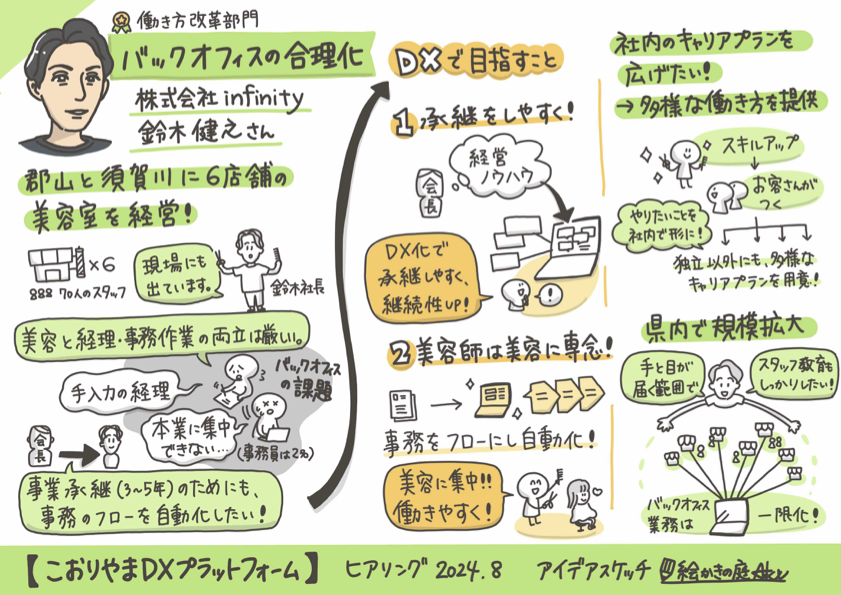 働き方改革部門
バックオフィスの合理化
株式会社infinity
鈴木健之さん
郡山と須賀川に6店舗の
美容室を経営!
×6
70人のスタッフ
現場にも
出ています。
鈴木社長
美容と経理・事務作業の両立は厳しい。
バックオフィス
の課題
手入力の経理
本業に集中
できない…
(事務員は2名)
会長
事業承継(3~5年)のためにも、
事務のフローを自動化したい!
DXで目指すこと
1 承継をしやすく!
経営
ノウハウ
会長
DX化で
承継しやすく、
継続性UP!
2 美容師は美容に専念!
事務をフローにし自動化!
美容に集中!!
働きやすく!
社内のキャリアプランを
広げたい!
→多様な働き方を提供
スキルアップ
お客さんが
つく
やりたいことを
社内で形に!
独立以外にも、多様な
キャリアプランを用意!
県内で規模拡大
手と目が
届く範囲で
スタッフ教育も
しっかりしたい!
バックオフィス
業務は
一限化!
【こおりやまDXプラットフォーム】 ヒアリング 2024.8 アイデアスケッチ 絵かきの庭